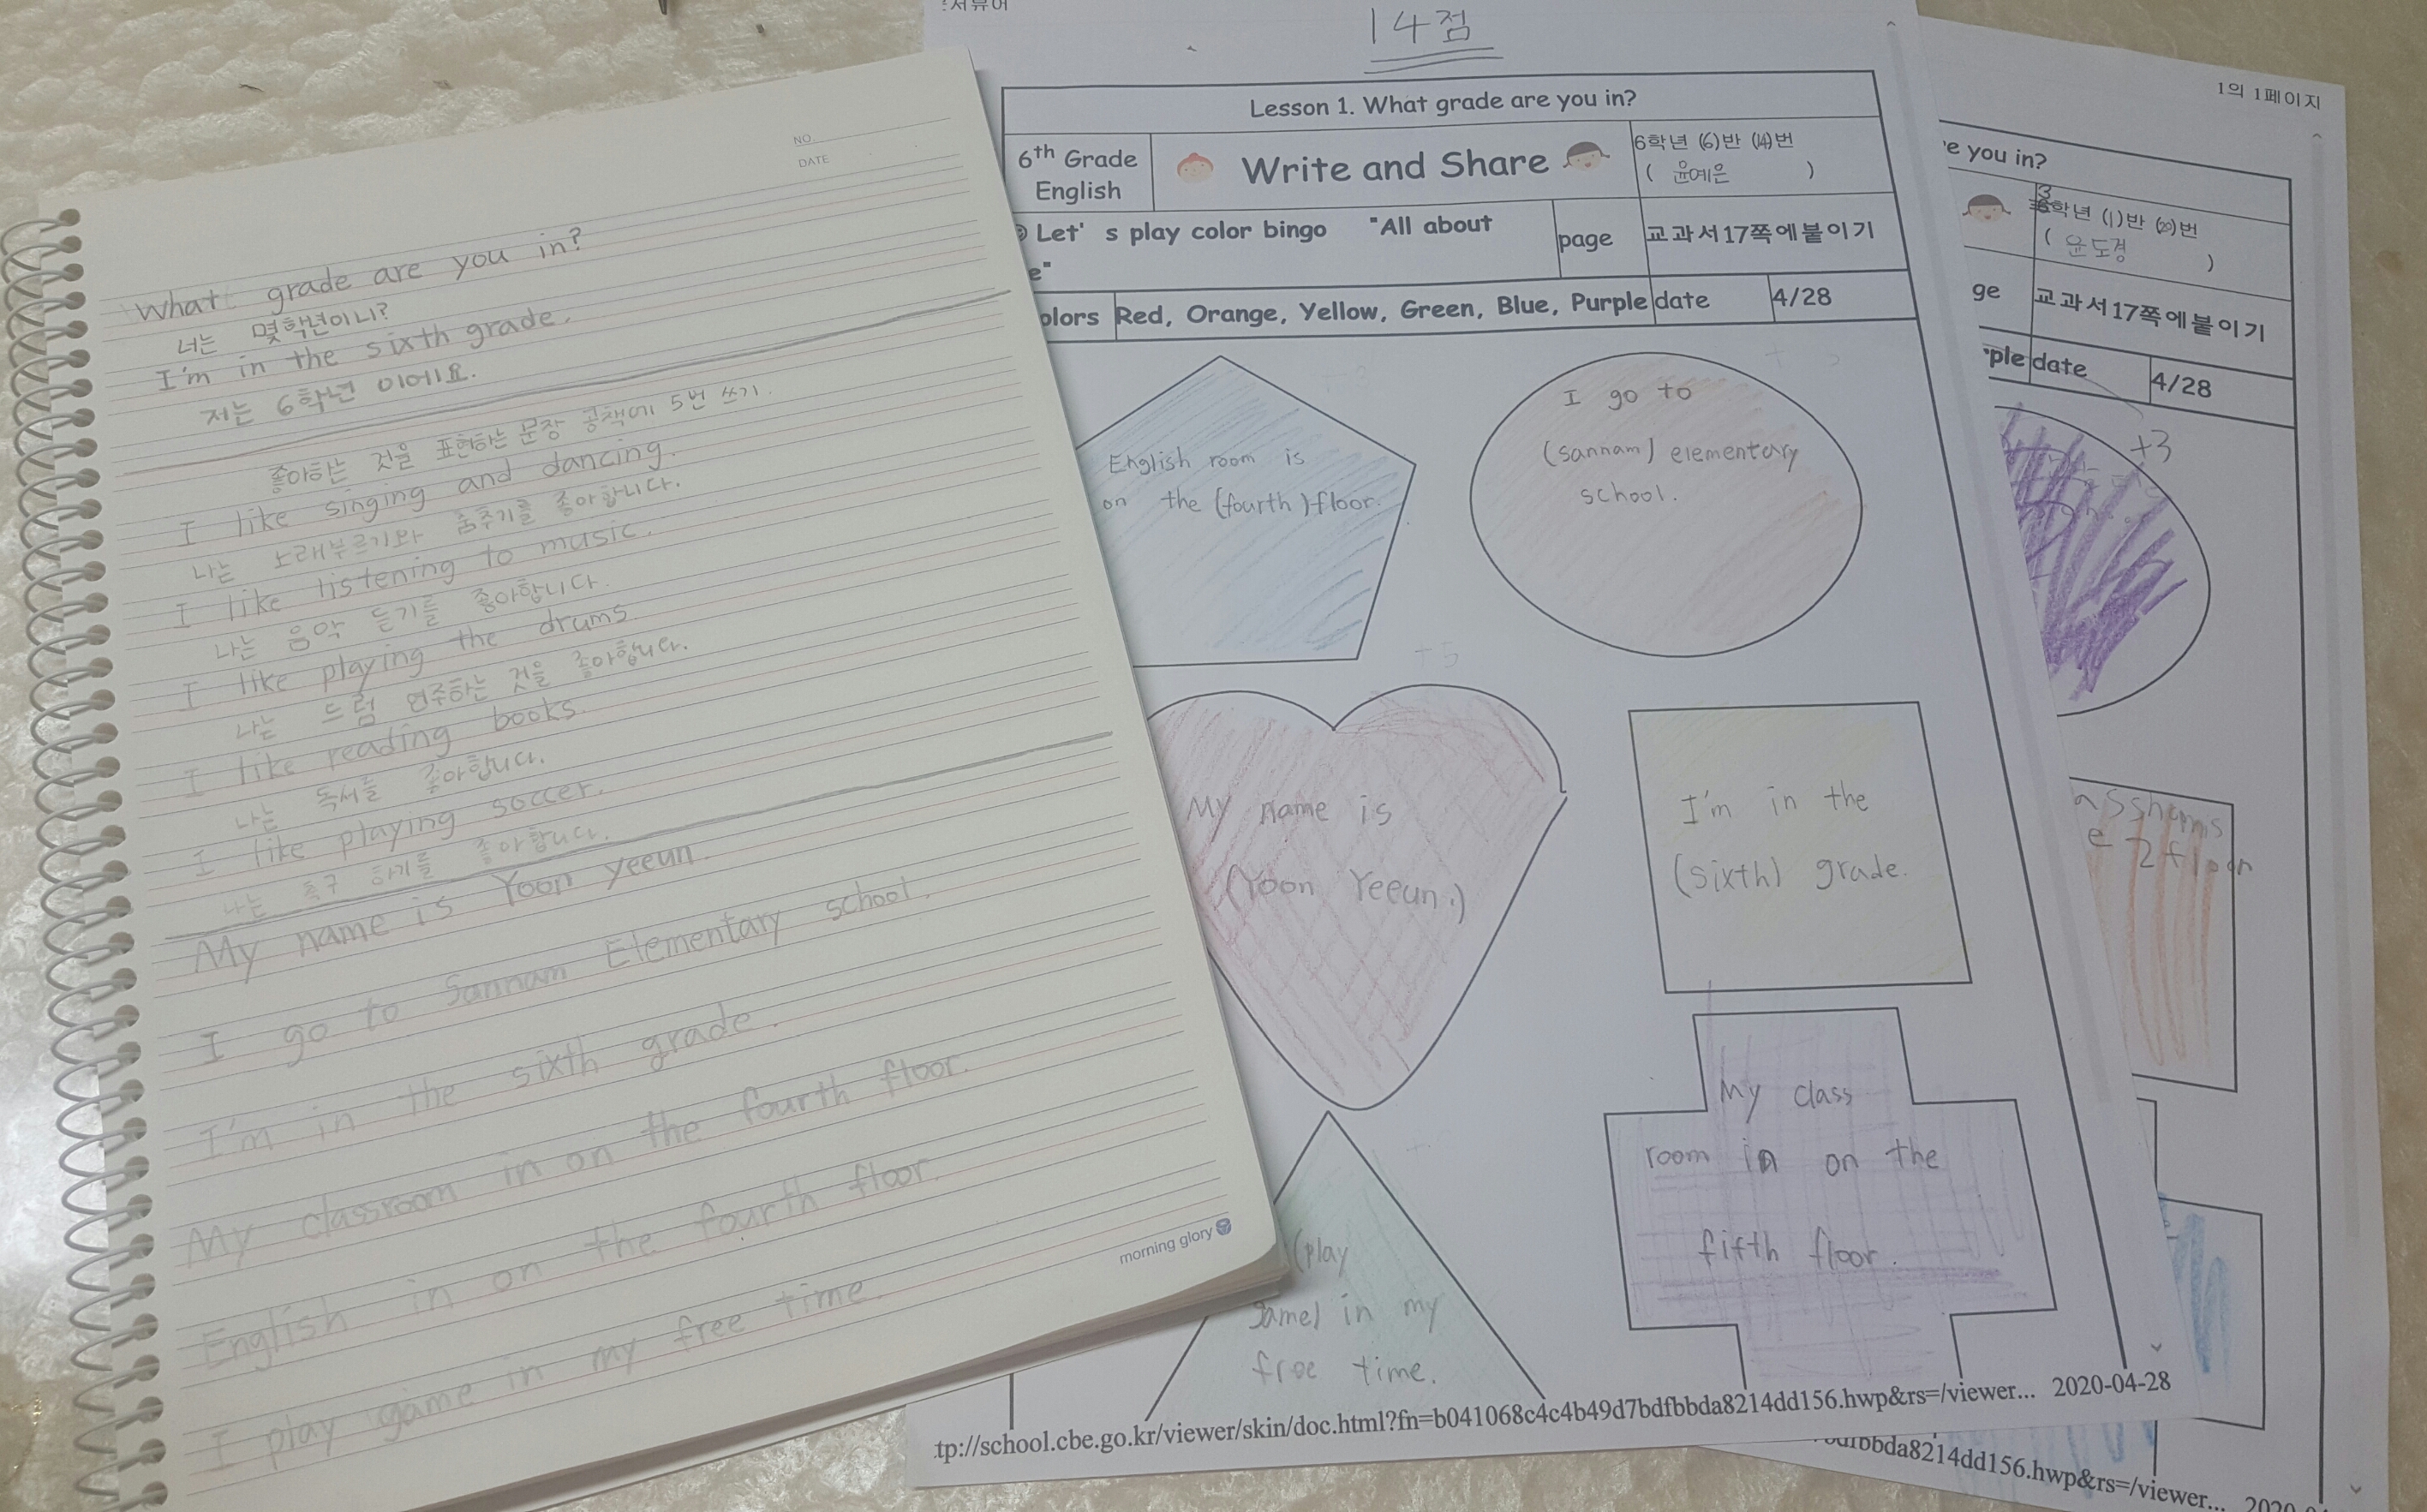 NO.
DATE
What grade are you in?
너는 몇학년이니?
I'm in the sixth grade.
저는 6학년 이에요.
좋아하는 것을 표현하는 문장 공책에 5번 쓰기.
I like singing and dancing.
나는 노래부르기와 춤추기를 좋아합니다.
I like listening to music.
나는 음악 듣기를 좋아합니다.
I like playing the drums.
나는 드럼 연주하는 것을 좋아합니다.
I like reading books.
나는 독서를 좋아합니다.
I like playing soccer.
나는 축구 하기를 좋아합니다.
My name is Yoon yeeun.
I go to Sannam Elementary school.
I'm in the sixth grade.
My classroom in on the fourth floor.
English in on the fourth floor.
I play game in my free time.
morning glory
서뷰어
14점
Lesson 1. What grade are you in?
6th Grade English
Write and Share
6학년 (6)반 (14)번
( 윤예은 )
Let's play color bingo "All about
e"
page
교과서17쪽에붙이기
olors
Red, Orange, Yellow, Green, Blue, Purple
date
4/28
English room is
on the (fourth) floor.
I go to
(sannam) elementary
school.
+5
My name is
(Yoon Yeeun.)
I'm in the
(sixth) grade.
(play
game) in my
free time.
My class
room in on the
fifth floor.
tp://school.cbe.go.kr/viewer/skin/doc.html?fn=b041068c4c4b49d7bdfbbda8214dd156.hwp&rs=/viewer... 2020-04-28
1의 1페이지
e you in?
3학년 (1)반 (20)번
( 윤도경 )
ge
교과서17쪽에붙이기
ple
date
4/28
+3
e 2 floor
bda8214dd156.hwp&rs=/viewer... 2020